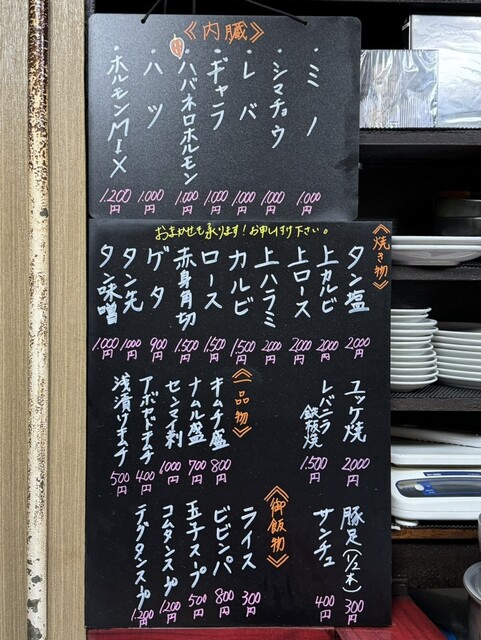 《内臓》
・ミノ 1.000円
・シマチョウ 1.000円
・レバ 1.000円
・ギャラ 1.000円
・ハバネロホルモン 1.000円
・ハツ 1.000円
・ホルモンMIX 1.200円
おまかせも承ります!お申し付け下さい。
《焼き物》
タン塩 2000円
上カルビ 2000円
上ロース 2000円
上ハラミ 2000円
カルビ 1.500円
ロース 1.500円
赤身角切 1.500円
ゲタ 900円
タン先 1000円
タン味噌 1000円
ユッケ焼 2000円
レバニラ鉄板焼 1.500円
豚足(1/2本) 300円
サンチュ 400円
《一品物》
キムチ盛 800円
ナムル盛 700円
センマイ刺 1000円
アボカドキムチ 400円
浅漬けキムチ 500円
《御飯物》
ライス 300円
ビビンパ 800円
玉子スープ 500円
コムタンスープ 1.200円
テグタンスープ 1.200円